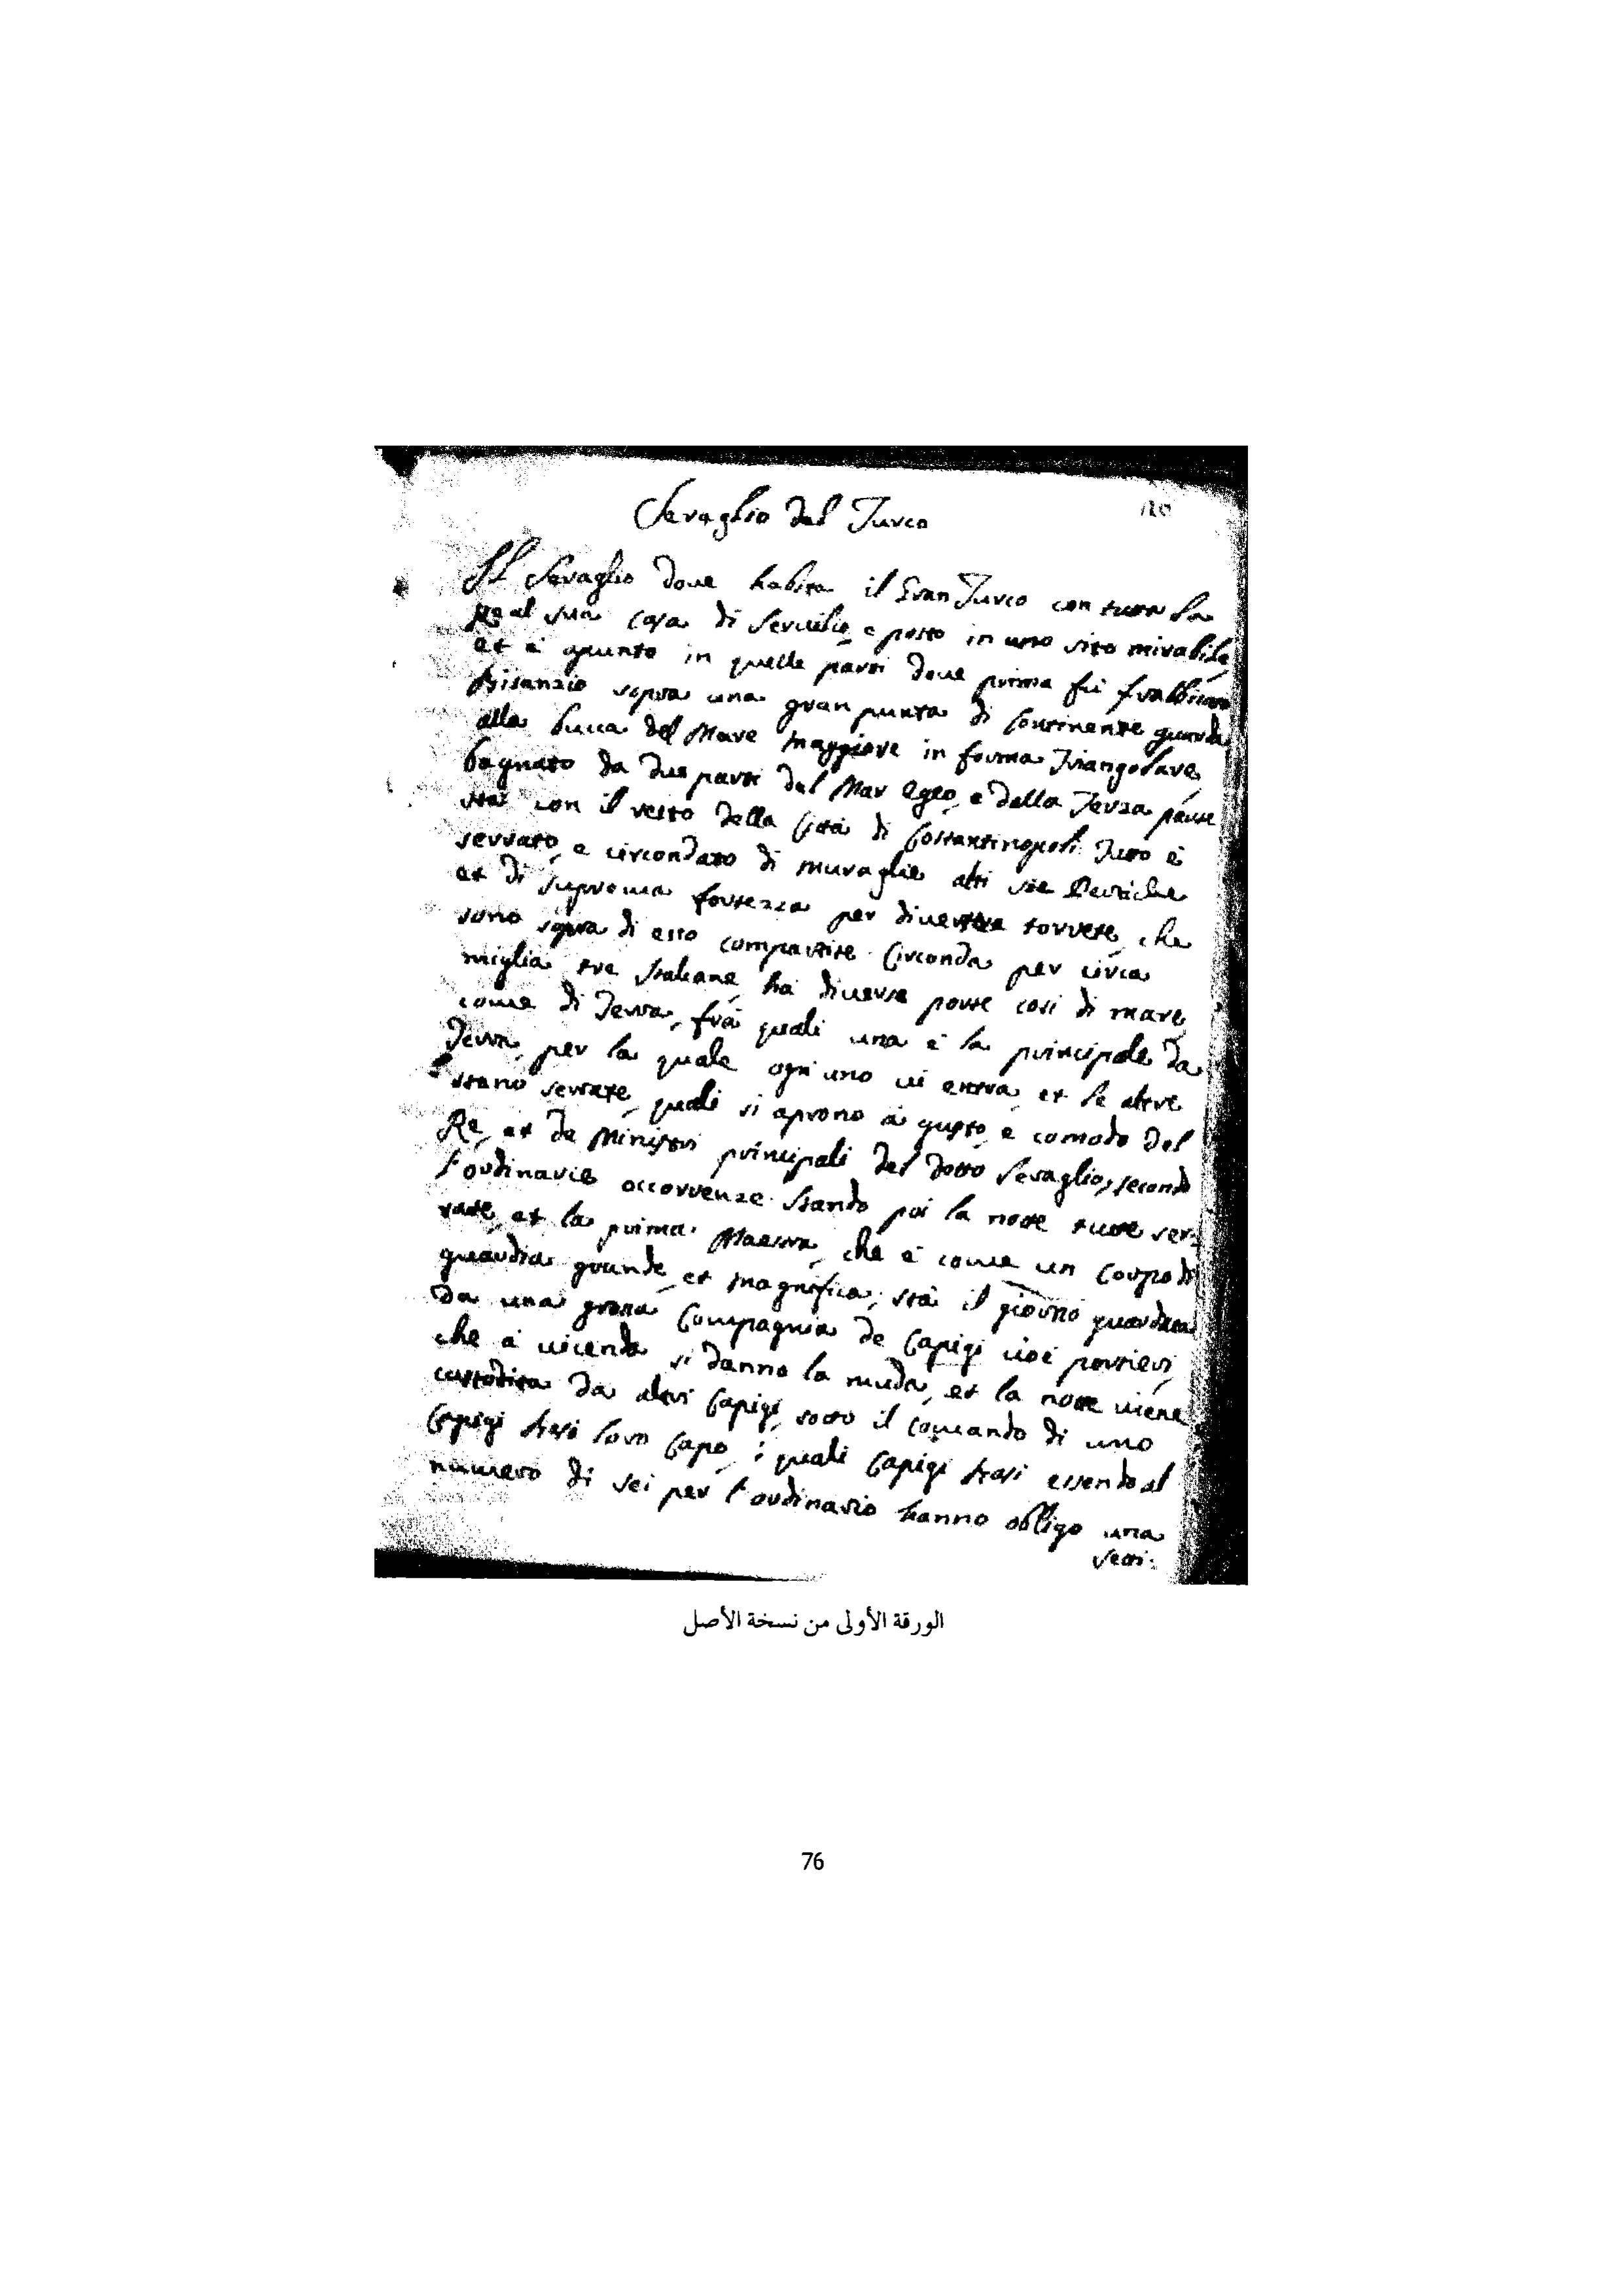 Seraglio del Turco
120
Il Seraglio doue habita il Gran Turco con tutta la
Real sua casa di seruitio, è posto in uno sito mirabile,
et è giunto in quelle parti doue prima fù frabbicato
Bisanzio sopra una gran punta di Continente guarda
alla bucca del Mare maggiore in forma Triangolare,
bagnato da due parti dal Mar Egeo, e dalla Terza parte
stà con il resto della Città di Costantinopoli. Tutto è
serrato, e circondato di muraglie alti
et di suprema fortezza per diuerse torrete, che
sono sopra di esso compartite. Circonda per circa
miglia tre Italiane, hà diuerse porte cosi di mare,
come di Terra, frà quali una è la principale da
Terra, per la quale ogni uno ui entra, et le altre
stano serrate, quali si aprono à gusto, e comodo del
Re, et de Ministri principali del detto Seraglio, secondo
l'ordinarie occorrenze. Stando poi la notte tutte ser-
rate, et la prima Maestra, che è come un Corpo di
guardia grande, et magnifica, stà il giorno guardata
da una grossa Compagnia de Capigi cioè portieri,
che à uicenda si danno la muda, et la notte uiene
custodita da altri Capigi, sotto il comando di uno
Capigi basi loro Capo, i quali Capigi basi essendo al
numero di sei per l'ordinario hanno obligo una
setti-
الورقة الأولى من نسخة الأصل
76